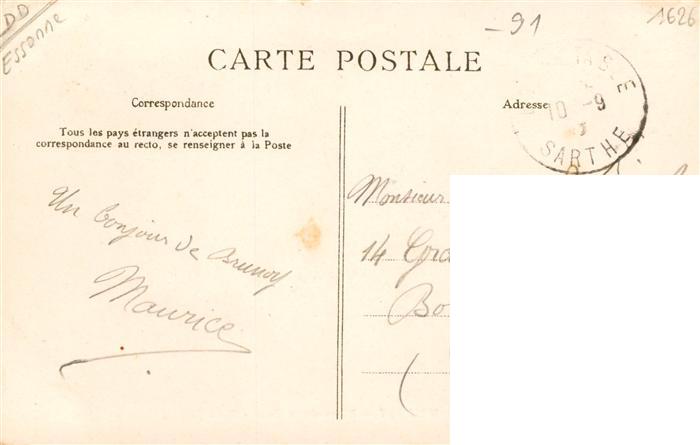 DD
Essonne
-91
1626
CARTE POSTALE
Correspondance
Adresse
Tous les pays étrangers n'acceptent pas la
correspondance au recto, se renseigner à la Poste
10 -9
SARTHE
Un bonjour de Brunoy
Maurice
Monsieur
14
Bo
(